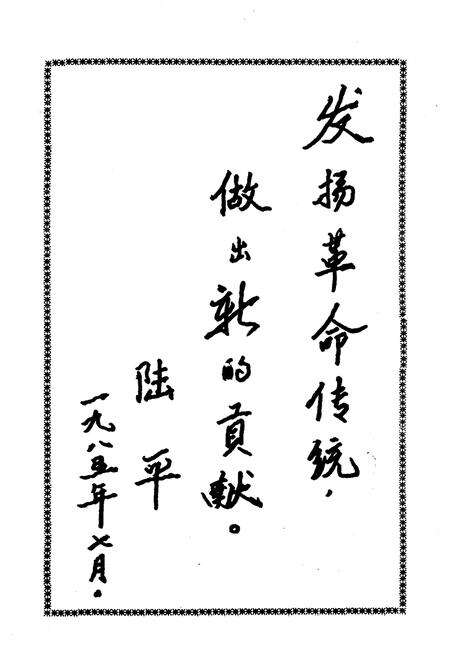 发扬革命传统，
做出新的貢献。
陆平
一九八五年七月。